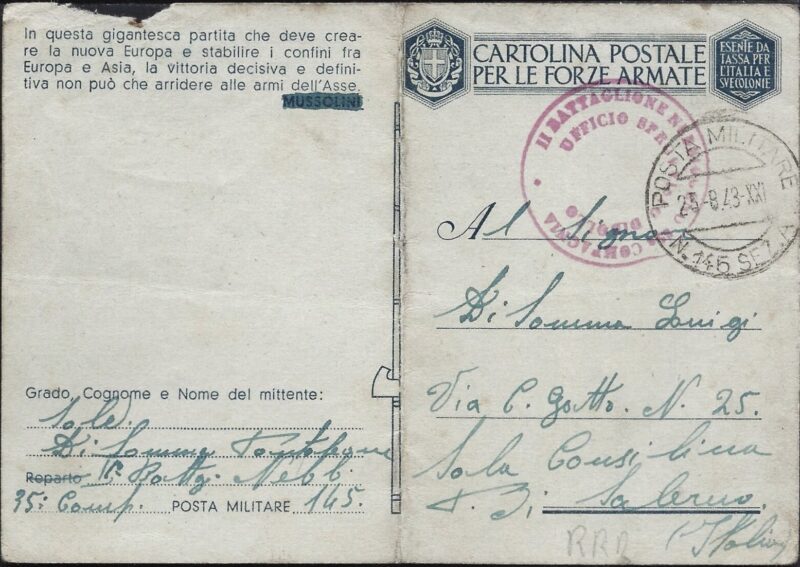 In questa gigantesca partita che deve crea-
re la nuova Europa e stabilire i confini fra
Europa e Asia, la vittoria decisiva e defini-
tiva non può che arridere alle armi dell'Asse.
MUSSOLINI
Grado, Cognome e Nome del mittente:
Sold.
Di Somma
Reparto Battg. Nebb.
35: Comp. POSTA MILITARE 145.
CARTOLINA POSTALE
PER LE FORZE ARMATE
ESENTE DA
TASSA PER
L'ITALIA E
SVE COLONIE
II BATTAGLIONE
UFFICIO
COMPAGNIA
POSTA MILITARE
25-8.43-XXI
N. 145 SEZ. A
Al Signor
Di Somma Luigi
Via C. Gotto. N. 25.
Sala Consilina
P. Di Salerno.
(Italia)
RRR